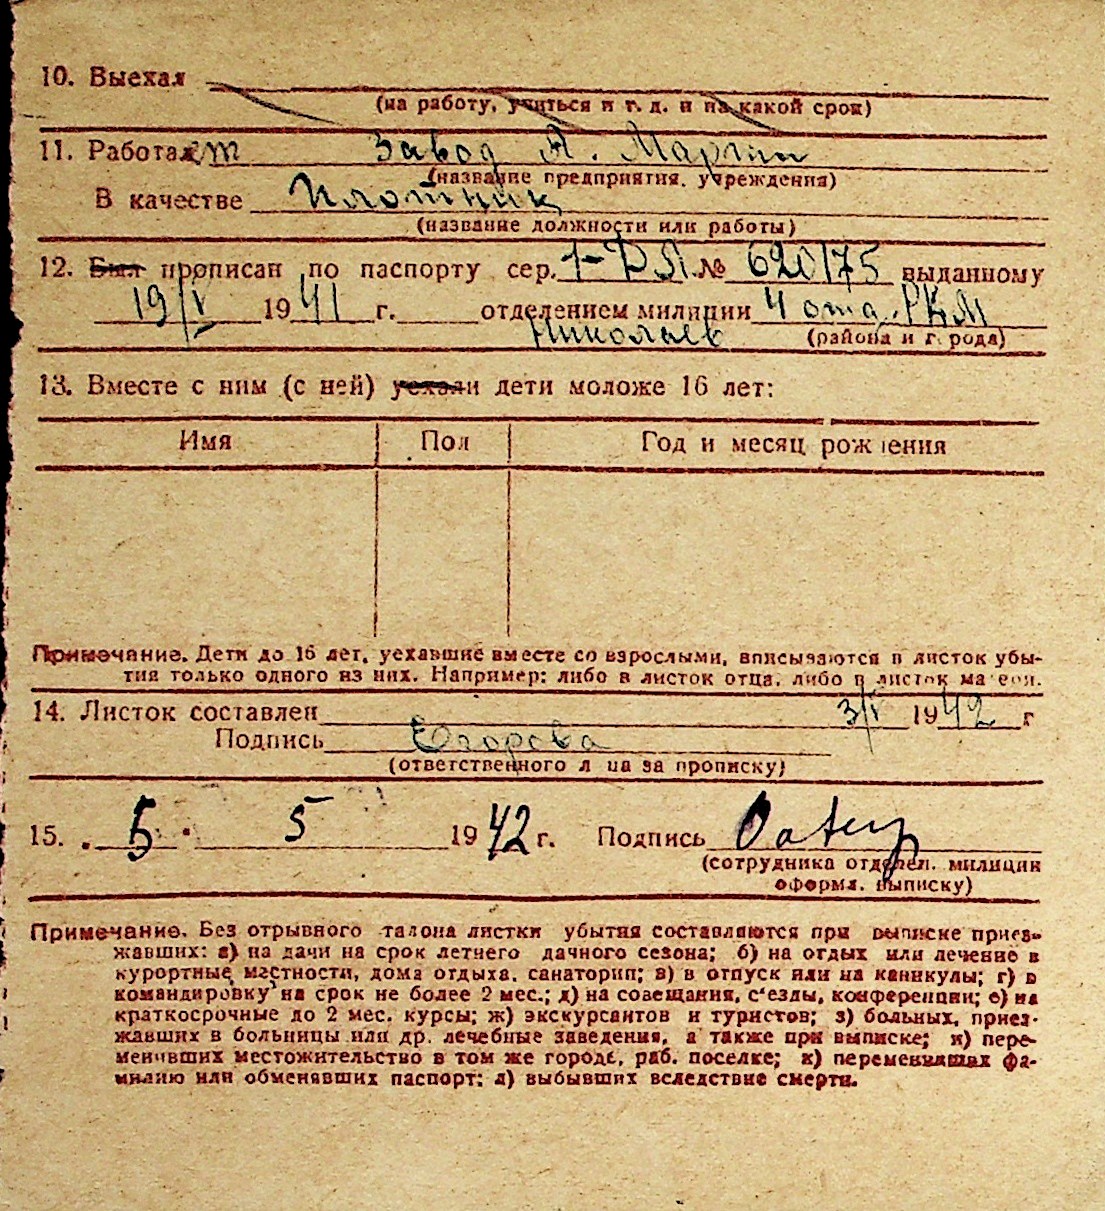 10. Выехал
(на работу, учиться и т. д. и на какой срок)
11. Работает Завод А. Марти
(название предприятия, учреждения)
В качестве Плотник
(название должности или работы)
12. Был прописан по паспорту сер. 1-ФЯ № 620175 выданному
19/V 1941 г. отделением милиции 4 отд. РКМ
Николаев (района и города)
13. Вместе с ним (с ней) уехали дети моложе 16 лет:
Имя Пол Год и месяц рождения
Примечание. Дети до 16 лет, уехавшие вместе со взрослыми, вписываются в листок убы-
тия только одного из них. Например: либо в листок отца, либо в листок матери.
14. Листок составлен 3/V 1942 г
Подпись Егорова
(ответственного лица за прописку)
15. 5 · 5 1942 г. Подпись
(сотрудника отделен. милиции
оформл. выписку)
Примечание. Без отрывного талона листки убытия составляются при выписке приез-
жавших: а) на дачи на срок летнего дачного сезона; б) на отдых или лечение в
курортные местности, дома отдыха, санатории; в) в отпуск или на каникулы; г) в
командировку на срок не более 2 мес.; д) на совещания, с'езды, конференции; е) на
краткосрочные до 2 мес. курсы; ж) экскурсантов и туристов; з) больных, приез-
жавших в больницы или др. лечебные заведения, а также при выписке; и) пере-
менивших местожительство в том же городе, раб. поселке; к) переменивших фа-
милию или обменявших паспорт; л) выбывших вследствие смерти.